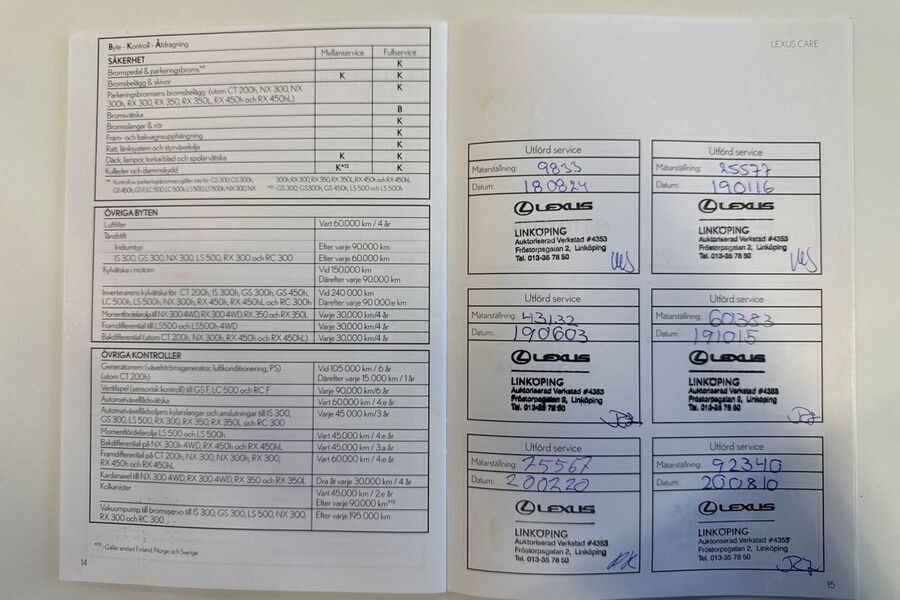 Byte - Kontroll - Åtdragning
SÄKERHET Mellanservice Fullservice
Bromspedal & parkeringsbroms*¹¹ K
Bromsbelägg & skivor K K
Parkeringsbromsens bromsbelägg (utom CT 200h, NX 300, NX K
300h, RX 300, RX 350, RX 350L, RX 450h och RX 450hL)
Bromsvätska B
Bromsslangar & rör K
Fram- och bakvagnsupphängning K
Ratt, länksystem och styrväxelolja K
Däck, lampor, torkarblad och spolarvätska K K
Kulleder och dammskydd K*¹² K
ÖVRIGA BYTEN
Luftfilter Vart 60.000 km / 4 år
Tändstift
Iridiumtyp Efter varje 90.000 km
IS 300, GS 300, NX 300, LS 500, RX 300 och RC 300 Efter varje 60.000 km
Kylvätska i motorn Vid 150.000 km
Därefter varje 90.000 km
Inverterarens kylvätska för CT 200h, IS 300h, GS 300h, GS 450h, Vid 240 000 km
LC 500h, LS 500h, NX 300h, RX 450h, RX 450hL och RC 300h Därefter varje 90 000:e km
Momentfördelarolja till NX 300 4WD, RX 300 4WD, RX 350 och RX 350L Varje 30,000 km/4 år
Framdifferential till LS500 och LS500h 4WD Varje 30,000 km/4 år
Bakdifferential (utom CT 200h, NX 300h, RX 450h och RX 450hL) Varje 30,000 km/4 år
ÖVRIGA KONTROLLER
Generatorrem (växelströmsgenerator, luftkonditionering, PS) Vid 105 000 km / 6 år
(utom CT 200h) Därefter varje 15 000 km / 1 år
Ventilspel (sensorisk kontroll) till GS F, LC 500 och RC F Varje 90,000 km/6 år
Automatväxellådsvätska Vart 60.000 km / 4:e år
Automatväxellådsoljans kylarslangar och anslutningar till IS 300, Varje 45 000 km/3 år
GS 300, LS 500, RX 300, RX 350, RX 350L och RC 300
Momentfördelarolja LS 500 och LS 500h Vart 45.000 km / 4:e år
Bakdifferential på NX 300h 4WD, RX 450h och RX 450hL Vart 45.000 km / 3:a år
Framdifferential på CT 200h, NX 300, NX 300h, RX 300, Vart 60.000 km / 4:e år
RX 450h och RX 450hL
Kardanaxel till NX 300 4WD, RX 300 4WD, RX 350 och RX 350L Dra åt varje 30.000 km / 4 år
Kolkanister Vart 45.000 km / 2:e år
Efter varje 90.000 km*¹³
Vakuumpump till bromsservo till IS 300, GS 300, LS 500, NX 300, Efter varje 195 000 km
RX 300 och RC 300
*¹³ : Gäller endast Finland, Norge och Sverige.
14
LEXUS CARE
Utförd service
Mätarställning: 9833
Datum: 180824
LEXUS
LINKÖPING
Auktoriserad Verkstad #4353
Fröstorpsgatan 2, Linköping
Tel. 013-35 78 50
Utförd service
Mätarställning: 25577
Datum: 190116
LEXUS
LINKÖPING
Auktoriserad Verkstad #4353
Fröstorpsgatan 2, Linköping
Tel. 013-35 78 50
Utförd service
Mätarställning: 43132
Datum: 190603
LEXUS
LINKÖPING
Auktoriserad Verkstad #4353
Fröstorpsgatan 2, Linköping
Tel. 013-35 78 50
Utförd service
Mätarställning: 60383
Datum: 191015
LEXUS
LINKÖPING
Auktoriserad Verkstad #4353
Fröstorpsgatan 2, Linköping
Tel. 013-35 78 50
Utförd service
Mätarställning: 75567
Datum: 200220
LEXUS
LINKÖPING
Auktoriserad Verkstad #4353
Fröstorpsgatan 2, Linköping
Tel. 013-35 78 50
Utförd service
Mätarställning: 92340
Datum: 200810
LEXUS
LINKÖPING
Auktoriserad Verkstad #4353
Fröstorpsgatan 2, Linköping
Tel. 013-35 78 50
15